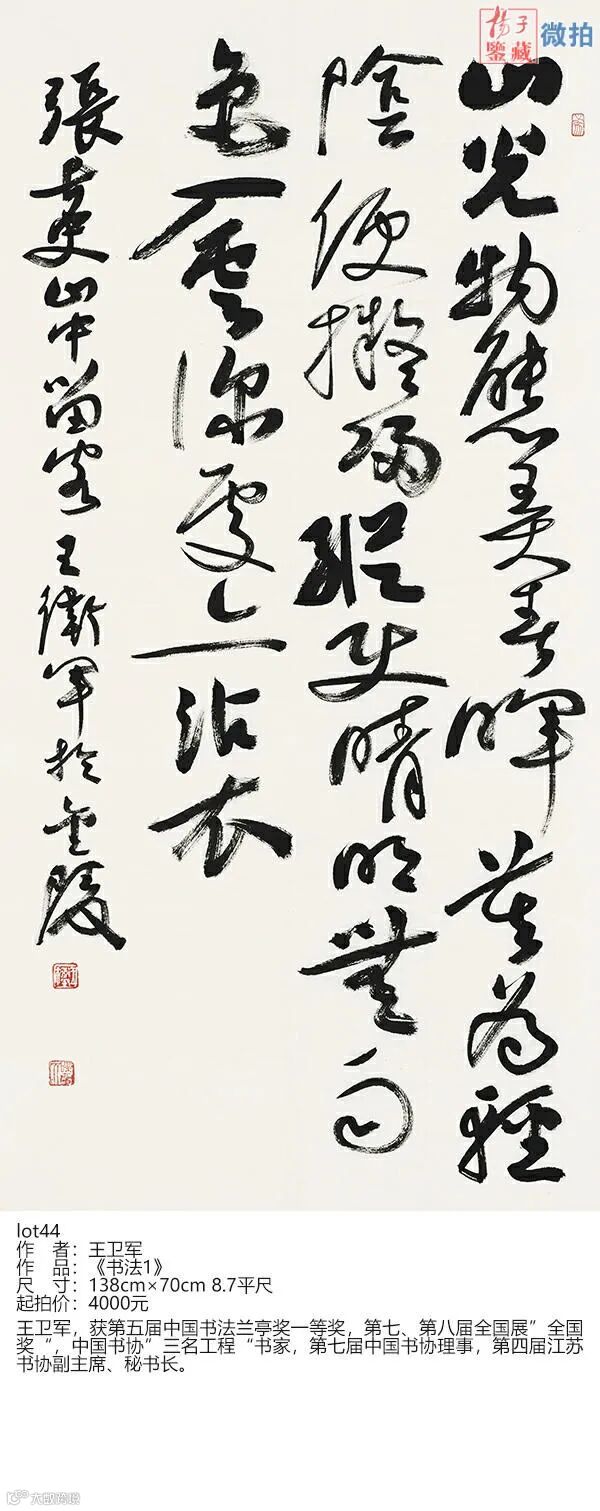 揚子
鑒藏
微拍
山光物態弄春暉莫為輕
陰便擬歸縱使晴明無雨
色入雲深處亦沾衣
張長史山中留客 王衛軍於金陵
lot44
作 者：王卫军
作 品：《书法1》
尺 寸：138cm×70cm 8.7平尺
起拍价：4000元
王卫军，获第五届中国书法兰亭奖一等奖，第七、第八届全国展”全国
奖“，中国书协“三名工程“书家，第七届中国书协理事，第四届江苏
书协副主席、秘书长。
大数跨境